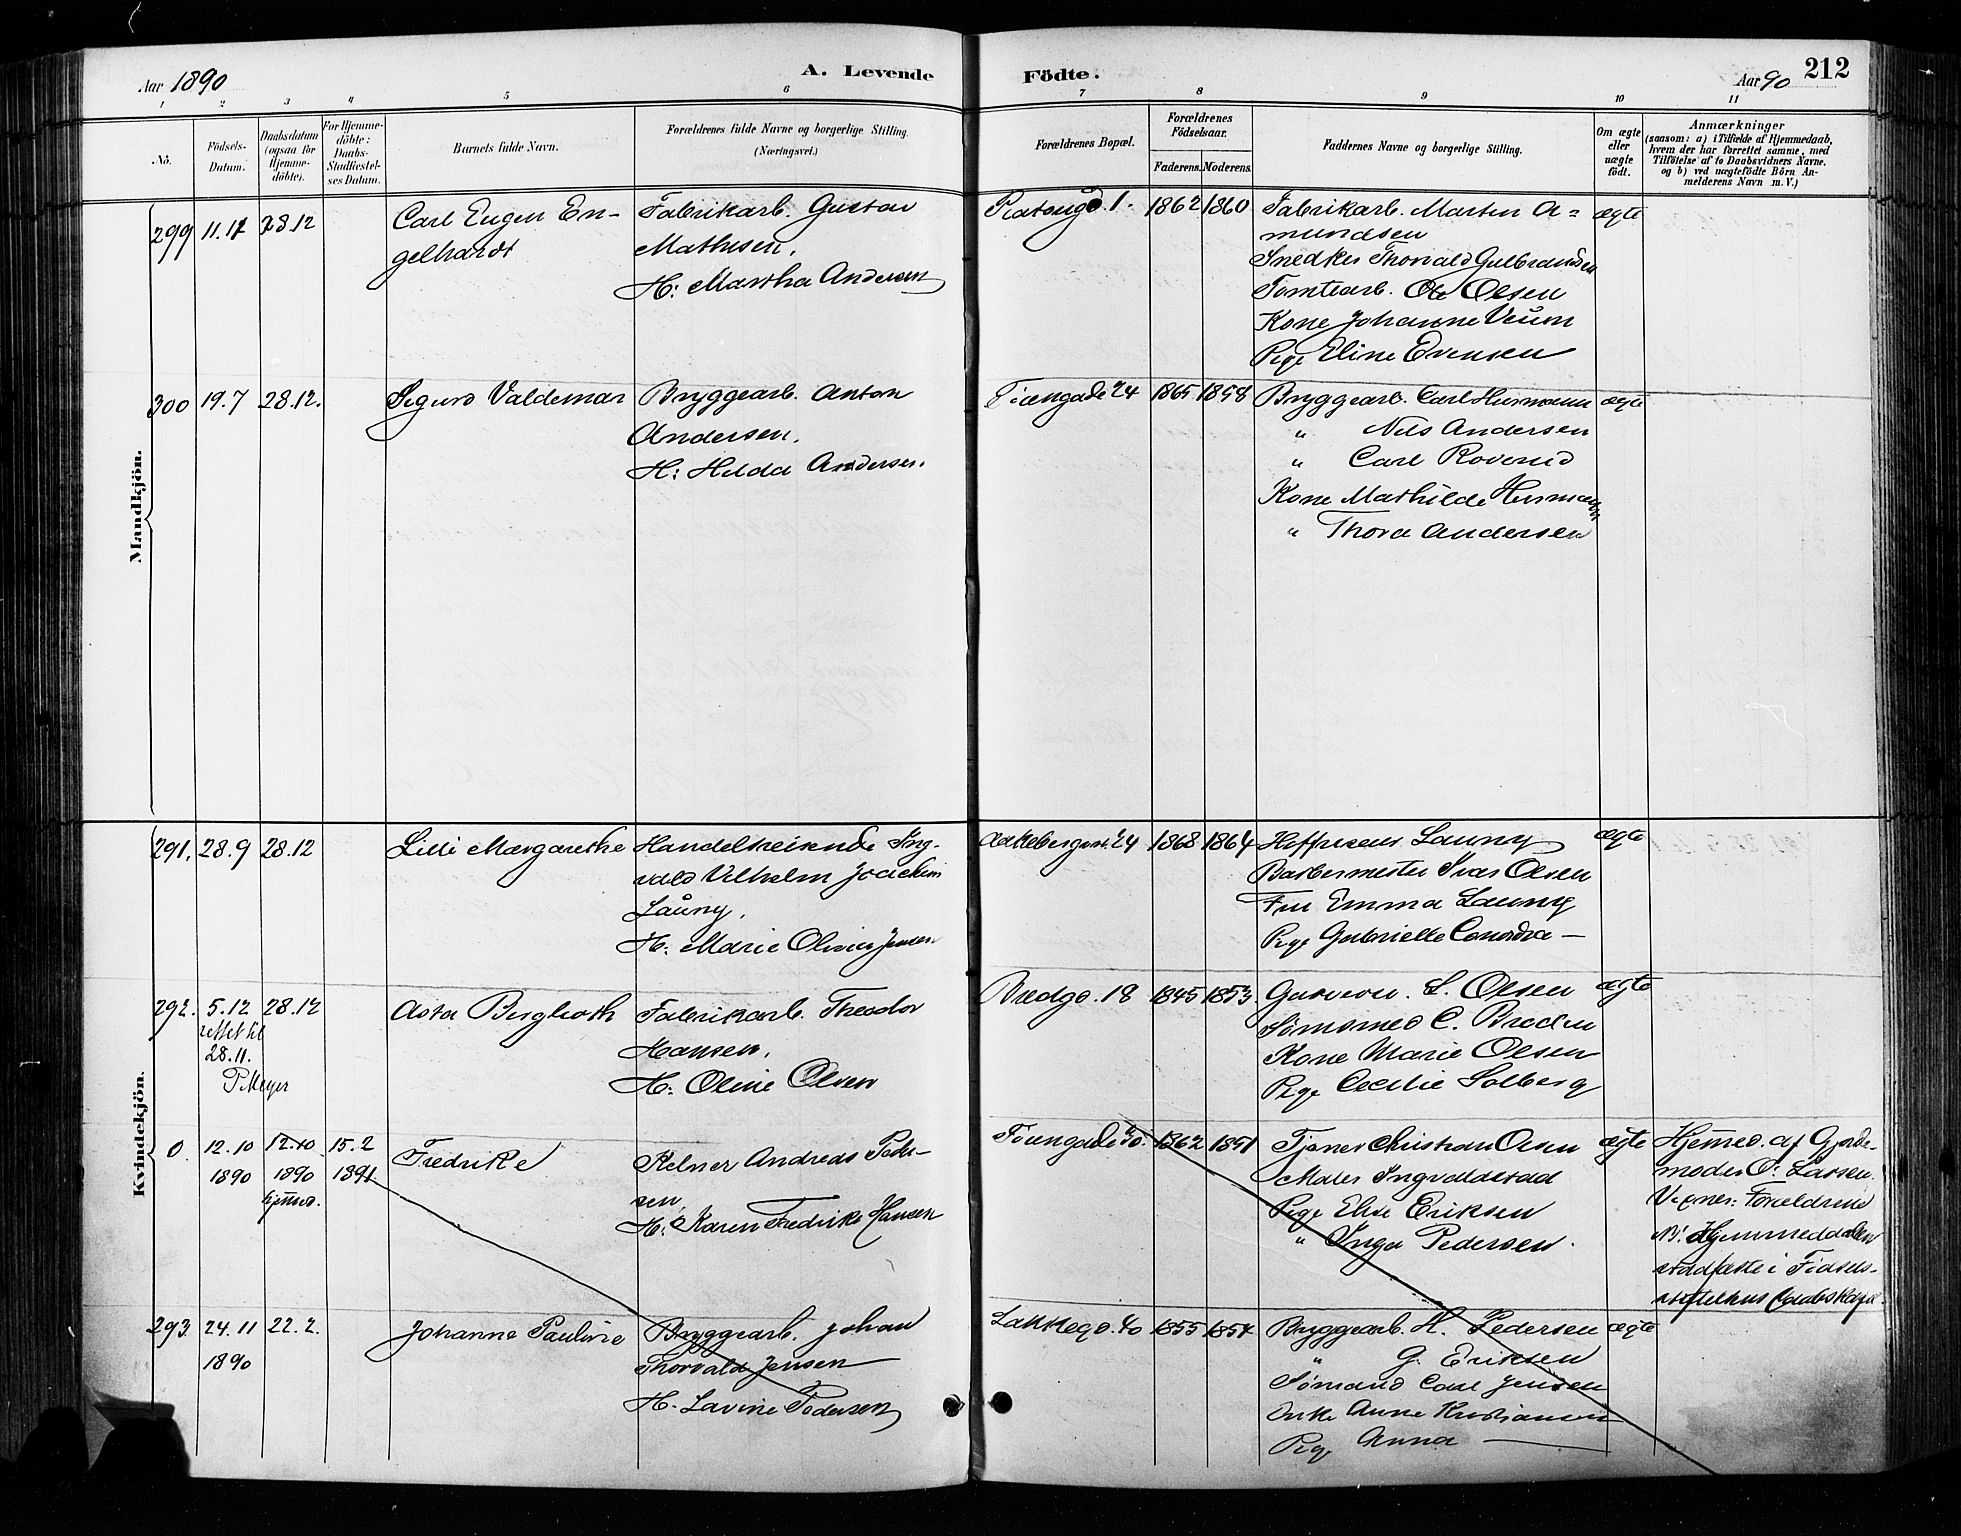 Aar 1890
A. Levende
Födte.
Aar 90
212
1 2 3 4 5 6 7 8 9 10 11
No.
Födsels-
Datum.
Daabsdatum
(ogsaa for
Hjemme-
döbte).
For Hjemme-
döbte:
Daabs-
Stadfæstel-
ses Datum.
Barnets fulde Navn.
Forældrenes fulde Navne og borgerlige Stilling.
(Næringsvei.)
Forældrenes Bopæl.
Forældrenes
Födselsaar.
Faderens. Moderens.
Faddernes Navne og borgerlige Stilling.
Om ægte
eller
uægte
födt.
Anmærkninger
(saasom: a) i Tilfælde af Hjemmedaab,
hvem der har forrettet samme, med
Tilföielse af to Daabsvidners Navne.
og b) ved uægtefödte Börn An-
melderens Navn m. V.)
Mandkjön.
299 11.11 28.12
Carl Eugen En-
gelhardt
Fabrikarb. Gustav
Mathisen,
H: Martha Andersen
1.
1862 1860
Fabrikarb. Martin A=
mundsen
Snedker Thorvald Gulbrandsen
Tomtearb. Ole Olsen
Kone Johanne Veum
Pige Eline Evensen
ægte
300 19.7 28.12.
Sigurd Valdemar
Bryggearb. Anton
Andersen,
H: Hilda Andersen.
Tøiengade 24
1865 1858
Bryggearb. Carl Hermann
" Nils Andersen
" Carl Roverud
Kone Mathilde Hermann
" Thora Andersen
ægte
Kvindekjön.
291, 28.9 28.12
Lilli Margarethe
Handelsreisende Ing-
vald Vilhelm Joachim
Launy,
H: Marie Olivia Jensen
Aakebergv. 24
1868 1864
Launy
Barbermester Ivar Olsen
Fru Emma Launy
Pige Gabrielle —
ægte
292. 5.12 28.12
rettet til
28.11.
P Meyer
Asta Bergljoth
Fabrikarb. Theodor
Hansen,
H: Oline Olsen
Bredgd. 18
1845 1853
S. Olsen
C. Bredin
Kone Marie Olsen
Pige Cecilie Solberg
ægte
0. 12.10 12.10 15.2
1890 1890 1891
hjemmed.
Fredrike
Kelner Andreas Peder-
sen,
H: Karen Fredrike Hansen
Tøiengade 40.
1862 1851
Tjener Christian Olsen
Maler Ingvald
Pige Elise Eriksen
" Inga Pedersen.
ægte
Hjemmed. af Gjorde-
moder O. Larsen.
Vidner: Forældrene
N: Hjemmedaaben
stadfæstet i Fødsels-
stiftelsens Daabskapel.
293. 24.11 22.2.
1890
Johanne Pauline
Bryggearb. Johan
Thorvald Jensen
H. Lavine Pedersen
Lakkegd. 40
1855 1854
Bryggearb. H. Pedersen
" G. Eriksen
Sømand Carl Jensen
Enke Anne Kristiansen
Pige Anna —
ægte